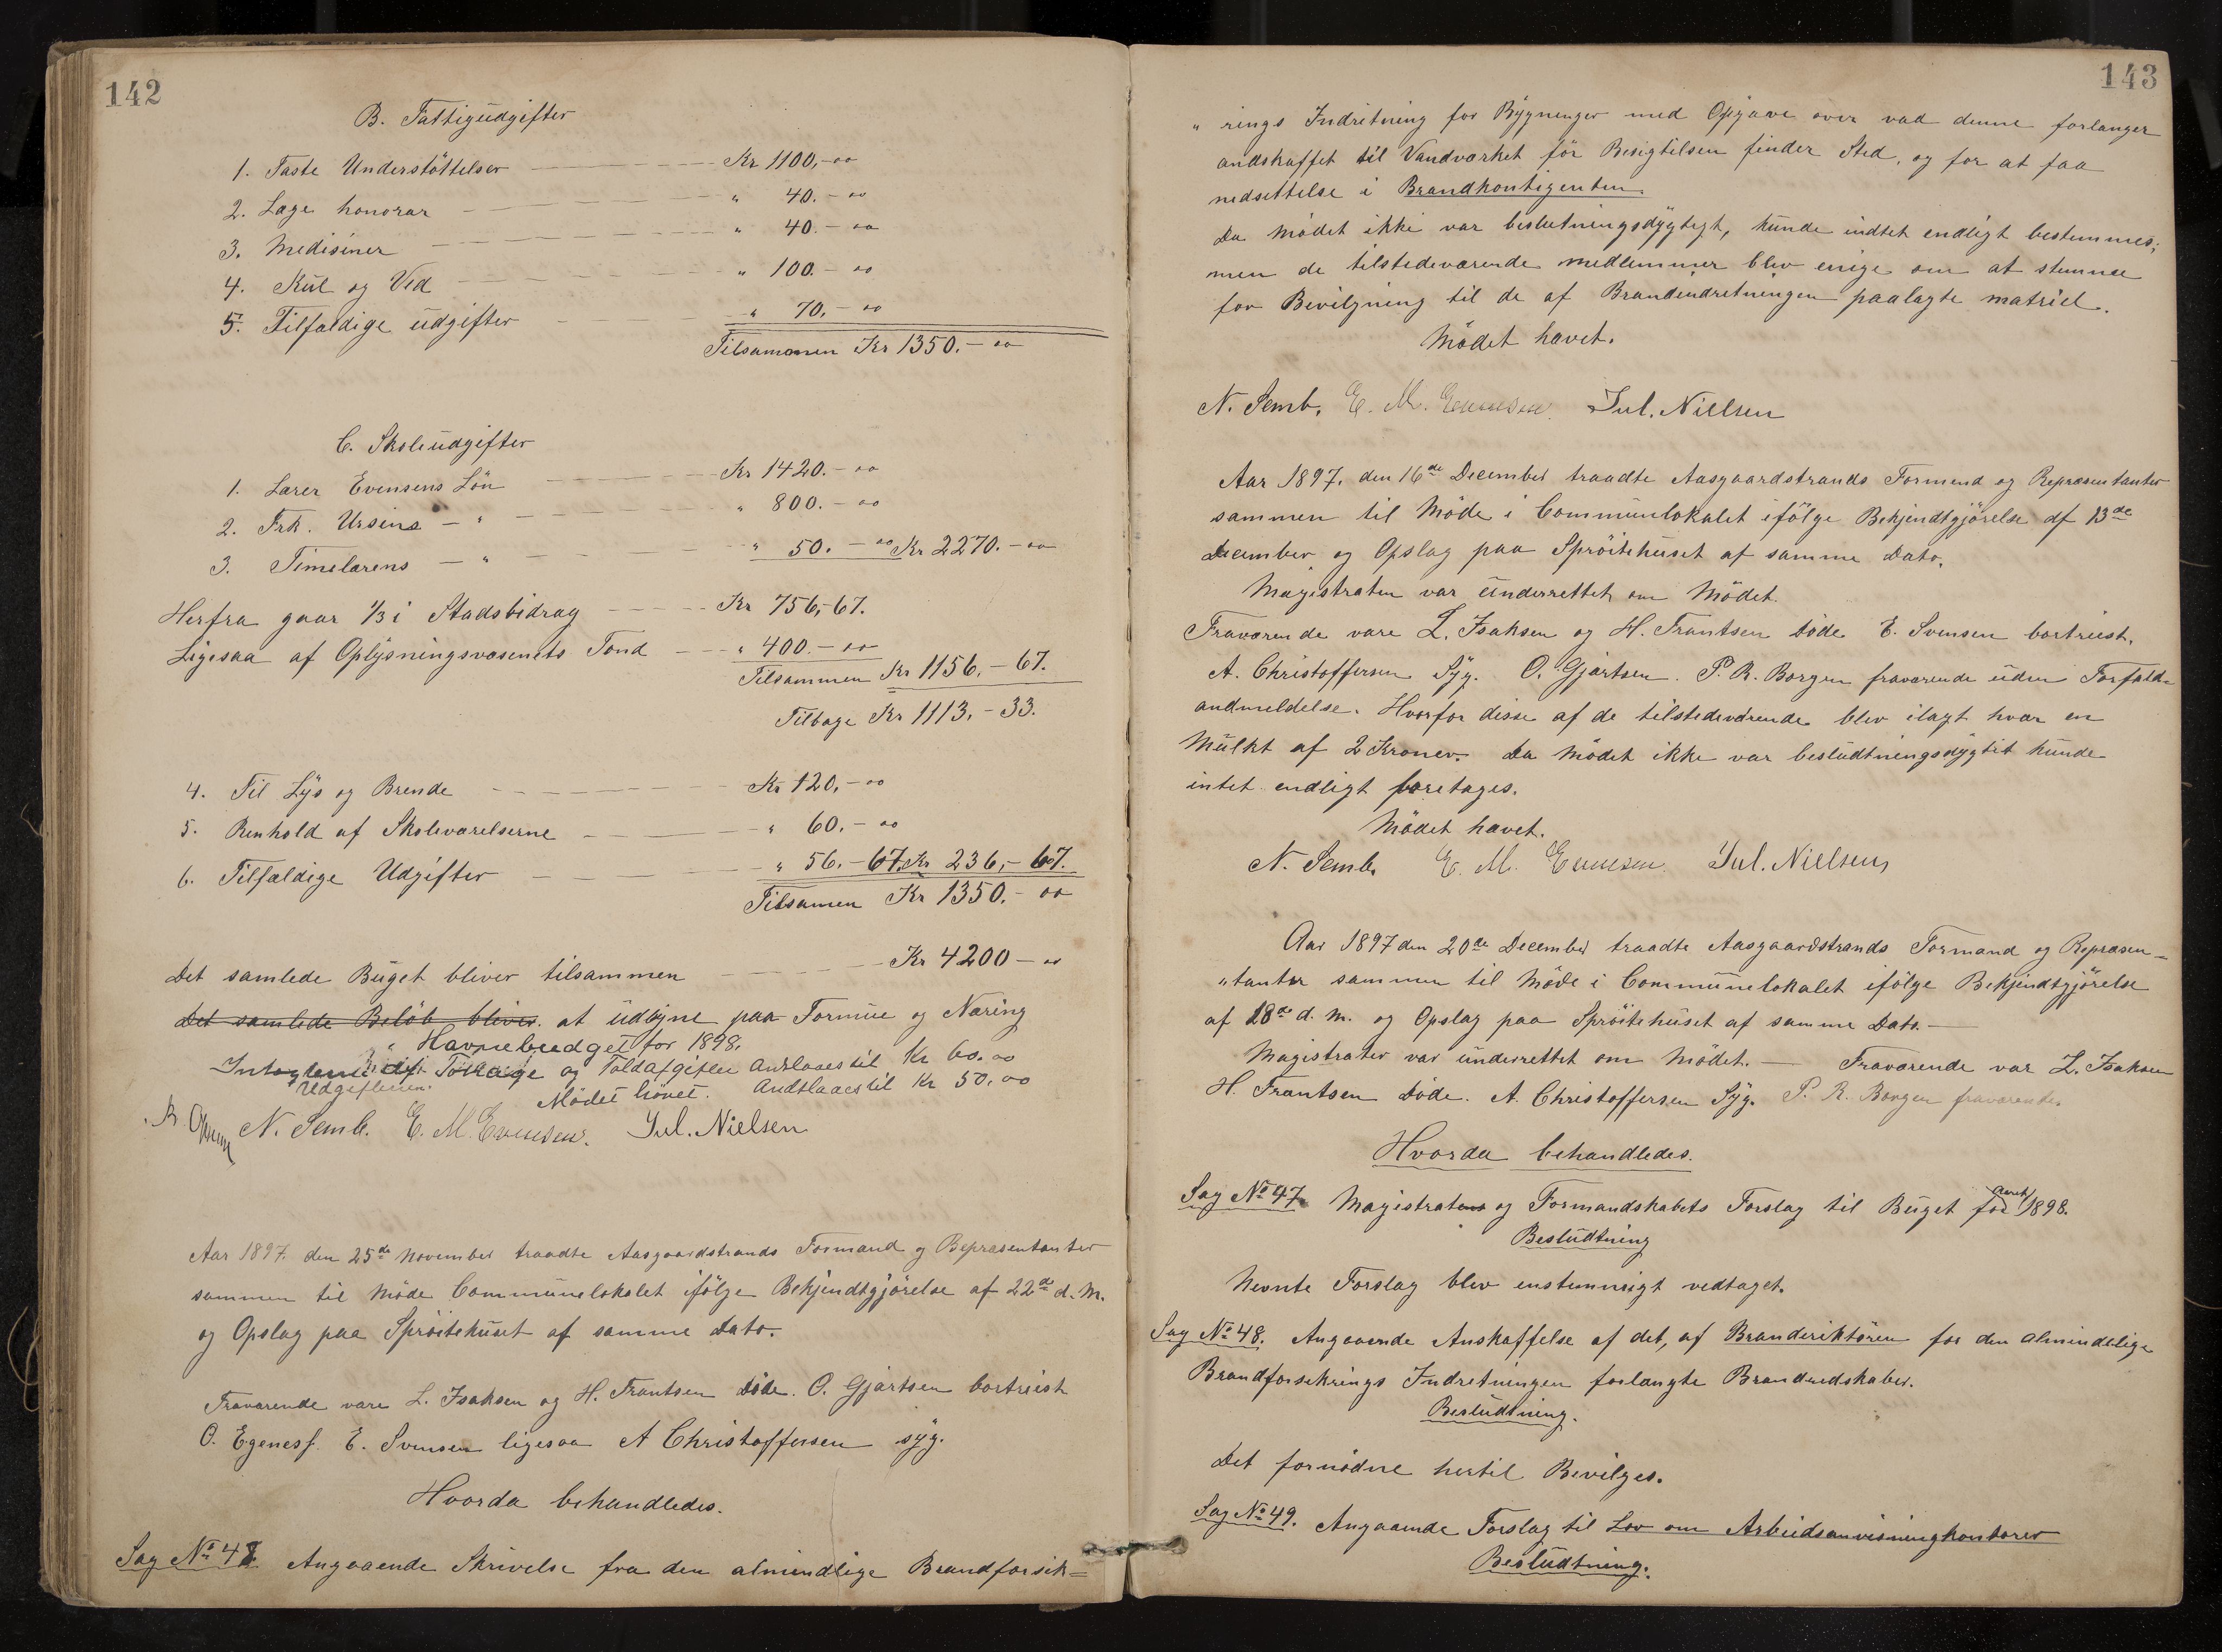 142
B. Fattigudgifter
1. Faste Understöttelser — Kr 1100,-00
2. Læge honorar — " 40.-00
3. Medisiner — " 40.-00
4. Kul og Ved — " 100.-00
5. Tilfældige udgifter — " 70,-00
Tilsammen Kr 1350.-00
C. Skoleudgifter
1. Lærer Evensens Lön — Kr 1420.-00
2. Frk. Ursins — " — " 800.-00
3. Timelærens — " — " 50.-00 Kr 2270.-00
Herfra gaar 1/3 i Stadsbidrag — Kr 756,-67.
Ligesaa af Oplysningsvæsenets Fond — " 400.-00
Tilsammen Kr 1156.-67.
Tilbage Kr 1113,-33.
4. Til Lys og Brende — Kr 120,-00
5. Renhold af Skoleværelserne — " 60.-00
6. Tilfældige Udgifter — " 56.-67. Kr 236,-67.
Tilsamen Kr 1350.-00
Det samlede Buget bliver tilsammen — Kr 4200-00
Det samlede Belöb bliver. at udligne paa Formue og Næring
" Havnebudget for 1898.
Intægterne af Tollage og Toldafgifter Andslaaes til Kr 60.00
Udgifterne. Mödet hövet. Andslaaes til Kr 50.00
N. Semb. E. M. Evensen. Jul. Nielsen
Aar 1897. den 25de November traadte Aasgaardstrands Formand og Repræsentanter
sammen til Möde Communelokalet ifölge Bekjendtgjörelse af 22de d. M.
og Opslag paa Spröitehuset af samme Dato.
Fraværende vare L. Isaksen og H. Frantsen Döde. O. Gjærtsen bortreist
O. Egenes f. E. Svensen ligesaa A Christoffersen syg.
Hvorda behandledes.
Sag No 47. Angaaende Skrivelse fra den almindlige Brandforsik=
143
" rings Indretning for Bygninger med Opgave over vad denne forlanger
andskaffet til Vandværket för Besigtilsen finder Sted, og for at faa
nedsettelse i Brandkontigenten.
Da Mödet ikke var beslutningsdygtigt, kunde indtet endligt bestemmes;
men de tilstedeværende medlemmer blev enige om at stemme
for Bevilgning til de af Brandindretningen paalagte matriel.
Mödet hævet.
N. Semb. E. M. Evensen. Jul. Nielsen
Aar 1897. den 16de December traadte Aasgaardstrands Formend og Repræsentanter
sammen til Möde i Communlokalet ifölge Bekjendtgjörelse af 13de
December og Opslag paa Spröitehuset af samme Dato.
Magistraten var underrettet om Mödet.
Fraværende vare L. Isaksen og H. Frantsen döde. E. Svensen bortreist.
A. Christoffersen Syg. O. Gjærtsen. P. R. Borgen fraværende uden Forfald=
andmeldelse. Hvorfor disse af de tilstedeværende blev ilagt hver en
Mulkt af 2 Kroner. Da Mödet ikke var besludtningsdygtit kunde
intet endligt foretages.
Mödet hævet.
N. Semb. E. M. Evensen. Jul. Nielsen,
Aar 1897 den 20de December traadte Aasgaardstrands Formand og Repræsen-
"tanter sammen til Möde i Communelokalet ifölge Bekjendtgjörelse
af 18de d. M. og Opslag paa Spröitehuset af samme Dato.—
Magistrater var underrettet om Mödet.— Fraværende var L. Isaksen
H. Frantsen Döde. A. Christoffersen Syg. P. R. Borgen fraværende.
Hvorda behandledes.
Sag No 47. Magistratens og Formandskabets Forslag til Buget for Aaret 1898.
Besludtning
Nevnte Forslag blev enstemmigt vedtaget.
Sag No 48. Angaaende Anskaffelse af det, af Branderiktören for den almindelige
Brandforsekrings Indretningen forlangte Brandredskaber.
Besludtning.
Det fornödne hertil Bevilges.
Sag No 49. Angaaende Forslag til Lov om Arbeidsanvisningkontorer
Besludtning.